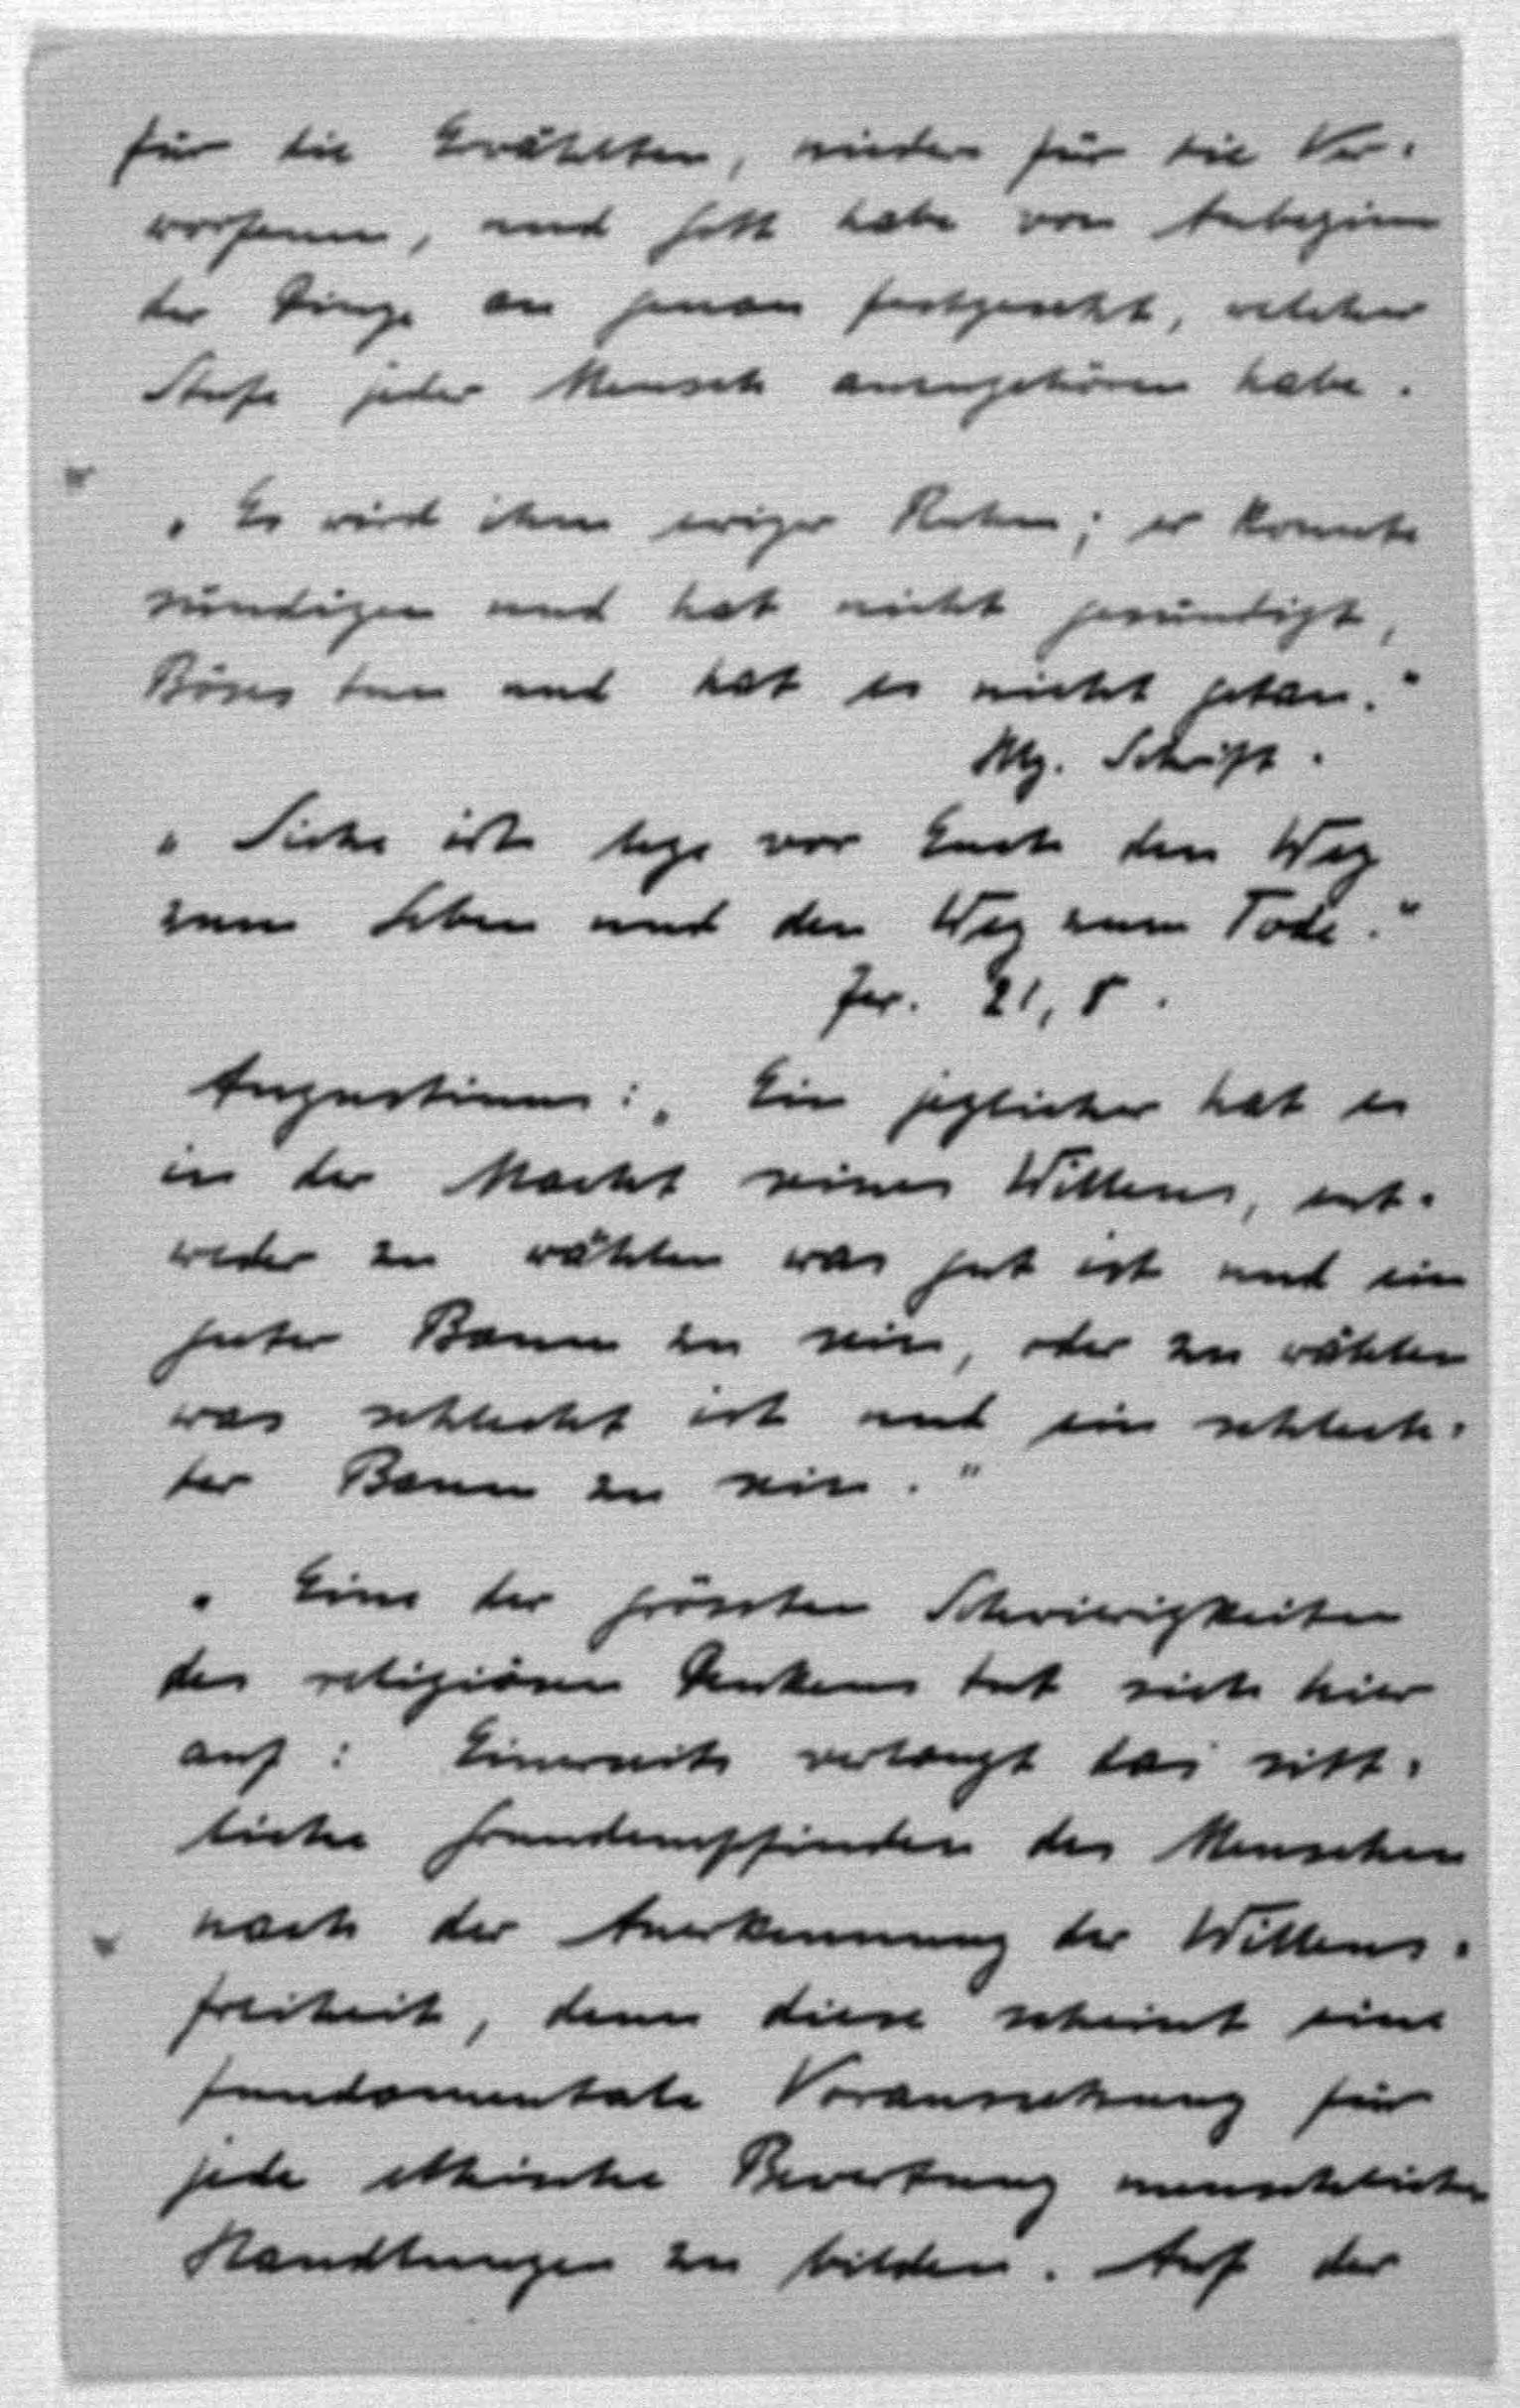 für die Erwählten, nieder für die Ver-
worfenen, und Gott habe von Anbeginn
der Dinge an genau festgesetzt, welcher
Stufe jeder Mensch anzugehören habe.
„Es wird ihm ewiger Ruhm; er konnte
sündigen und hat nicht gesündigt,
Böses tun und hat es nicht getan.“
Hlg. Schrift.
„Siehe ich lege vor Euch den Weg
zum Leben und den Weg zum Tode.“
Jer. 21, 8.
Augustinus: „Ein jeglicher hat es
in der Macht seines Willens, ent-
weder zu wählen was gut ist und ein
guter Baum zu sein, oder zu wählen
was schlecht ist und ein schlech-
ter Baum zu sein.“
„Eine der grössten Schwierigkeiten
des religiösen Denkens tut sich hier
auf: Einerseits verlangt das sitt-
liche Grundempfinden des Menschen
nach der Anerkennung der Willens-
freiheit, denn diese scheint eine
fundamentale Voraussetzung für
jede ethische Bewertung menschlicher
Handlungen zu bilden. Auf der